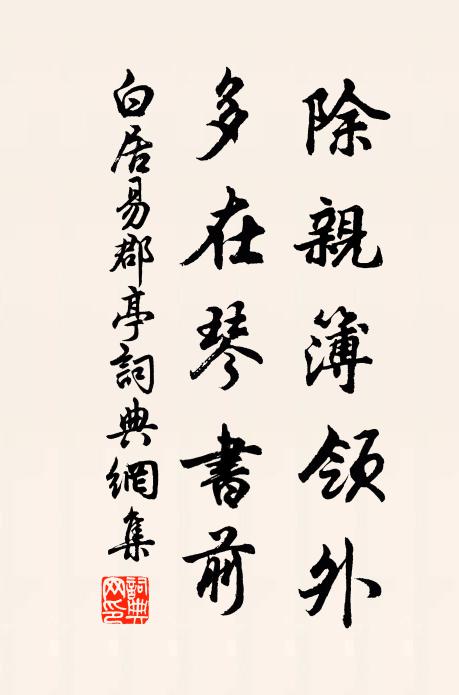 除親簿領外
多在琴書前
白居易郡亭詞典網集
詞典網印